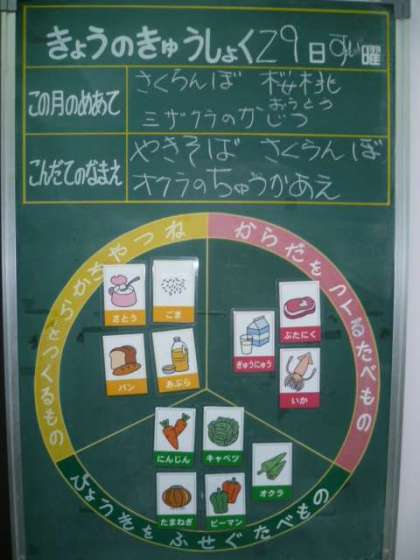 きょうのきゅうしょく29日すい曜
この月のめあて
さくらんぼ 桜桃
おうとう
ミザクラのかじつ
こんだてのなまえ
やきそば さくらんぼ
オクラのちゅうかあえ
ねつやちからをつくるもの
からだをつくるたべもの
さとう
ごま
パン
あぶら
ぎゅうにゅう
ぶたにく
いか
にんじん
キャベツ
オクラ
たまねぎ
ピーマン
びょうきをふせぐたべもの